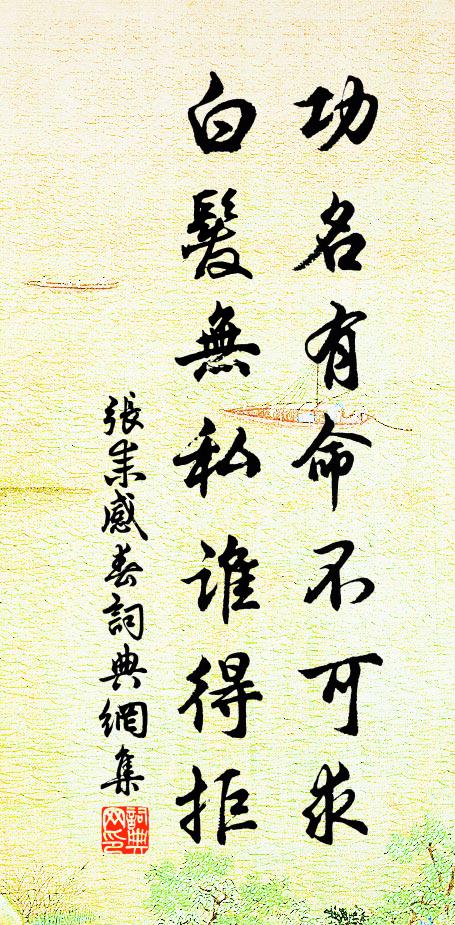 功名有命不可求
白髮無私誰得拒
張耒感春詞典網集
詞典網印